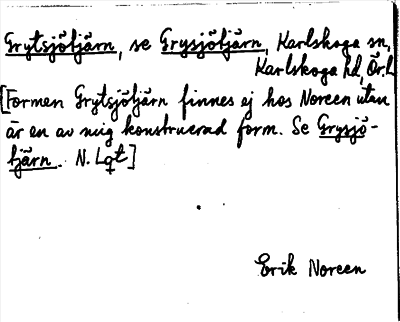 Grytsjötjärn, se Grysjötjärn, Karlskoga sn,
Karlskoga hd, Ör.l.
[Formen Grytsjötjärn finnes ej hos Noreen utan
är en av mig konstruerad form. Se Grysjö-
tjärn. N. Lqt]
Erik Noreen